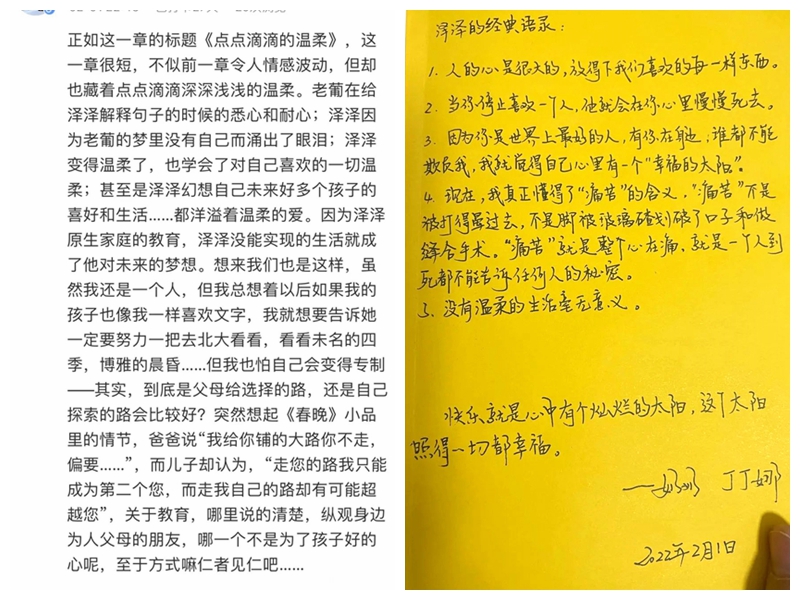 正如这一章的标题《点点滴滴的温柔》，这
一章很短，不似前一章令人情感波动，但却
也藏着点点滴滴深深浅浅的温柔。老葡在给
泽泽解释句子的时候的悉心和耐心；泽泽因
为老葡的梦里没有自己而涌出了眼泪；泽泽
变得温柔了，也学会了对自己喜欢的一切温
柔；甚至是泽泽幻想自己未来好多个孩子的
喜好和生活......都洋溢着温柔的爱。因为泽泽
原生家庭的教育，泽泽没能实现的生活就成
了他对未来的梦想。想来我们也是这样，虽
然我还是一个人，但我总想着以后如果我的
孩子也像我一样喜欢文字，我就想要告诉她
一定要努力一把去北大看看，看看未名的四
季，博雅的晨昏......但我也怕自己会变得专制
——其实，到底是父母给选择的路，还是自己
探索的路会比较好？突然想起《春晚》小品
里的情节，爸爸说“我给你铺的大路你不走，
偏要......”，而儿子却认为，“走您的路我只能
成为第二个您，而走我自己的路却有可能超
越您”，关于教育，哪里说的清楚，纵观身边
为人父母的朋友，哪一个不是为了孩子好的
心呢，至于方式嘛仁者见仁吧......
泽泽的经典语录：
1. 人的心是很大的，放得下我们喜欢的每一样东西。
2. 当你停止喜欢一个人，他就会在你心里慢慢死去。
3. 因为你是世界上最好的人，有你在身边，谁都不能
欺负我，我就觉得自己心里有一个“幸福的太阳”。
4. 现在，我真正懂得了“痛苦”的含义，“痛苦”不是
被打得晕过去，不是脚被玻璃碴划破了口子和做
缝合手术。“痛苦”就是整个心在痛，就是一个人到
死都不能告诉任何人的秘密。
5. 没有温柔的生活毫无意义。
快乐就是心中有个灿烂的太阳，这个太阳
照得一切都幸福。
——好好 丁丁娜
2022年2月1日